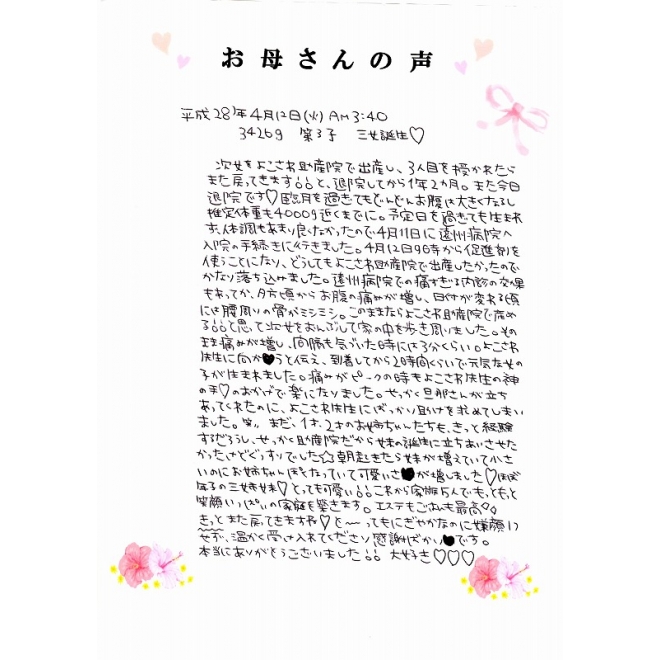 お母さんの声
平成28年4月12日(火) AM3:40
3426g 第3子 三女誕生♡
次女をよこさわ助産院で出産し、3人目を授かれたら
また戻ってきます!!と、退院してから1年2カ月。また今日
退院です♡臨月を過ぎてもどんどんお腹は大きくなるし
推定体重も4000g近くまでに。予定日を過ぎても生まれ
ず、体調もあまり良くなかったので4月11日に遠州病院へ
入院の手続きに行きました。4月12日9時から促進剤を
使うことになり、どうしてもよこさわ助産院で出産したかったので
かなり落ち込みました。遠州病院での痛すぎる内診の効果
もあってか、夕方頃からお腹の痛みが増し、日付が変わる頃
には腰周りの骨がミシミシ。このままならよこさわ助産院で産め
る!!と思って次女をおんぶして家の中を歩き周りました。その
まま痛みが増し、間隔も気づいた時には3分くらい。よこさわ
先生に向か♥うと伝え、到着してから2時間くらいで元気な女の
子が生まれました。痛みがピークの時もよこさわ先生の神
の手♡のおかげで楽になりました。せっかく旦那さんが立ち
あってくれたのに、よこさわ先生にばっかり助けを求めてしまい
ました。笑。まだ、1才、2才のお姉ちゃんたちも、きっと経験
するだろうし、せっかく助産院だから妹の誕生に立ちあいさせた
かったけどぐっすりでした☆朝起きたら妹が増えていて小さ
いのにお姉ちゃんぽくなっていて可愛いさ♥が増しました♡ほぼ
年子の三姉妹♡とっても可愛い!!これから家族5人でも、もっと
笑顔いっぱいの家庭を築きます。エステもごはんも最高♢♢
きっとまた戻ってきますね♡と〜ってもにぎやかなのに嫌顔1つ
せず、温かく受け入れてくださり感謝ばかり♥です。
本当にありがとうございました!! 大好き♡♡♡